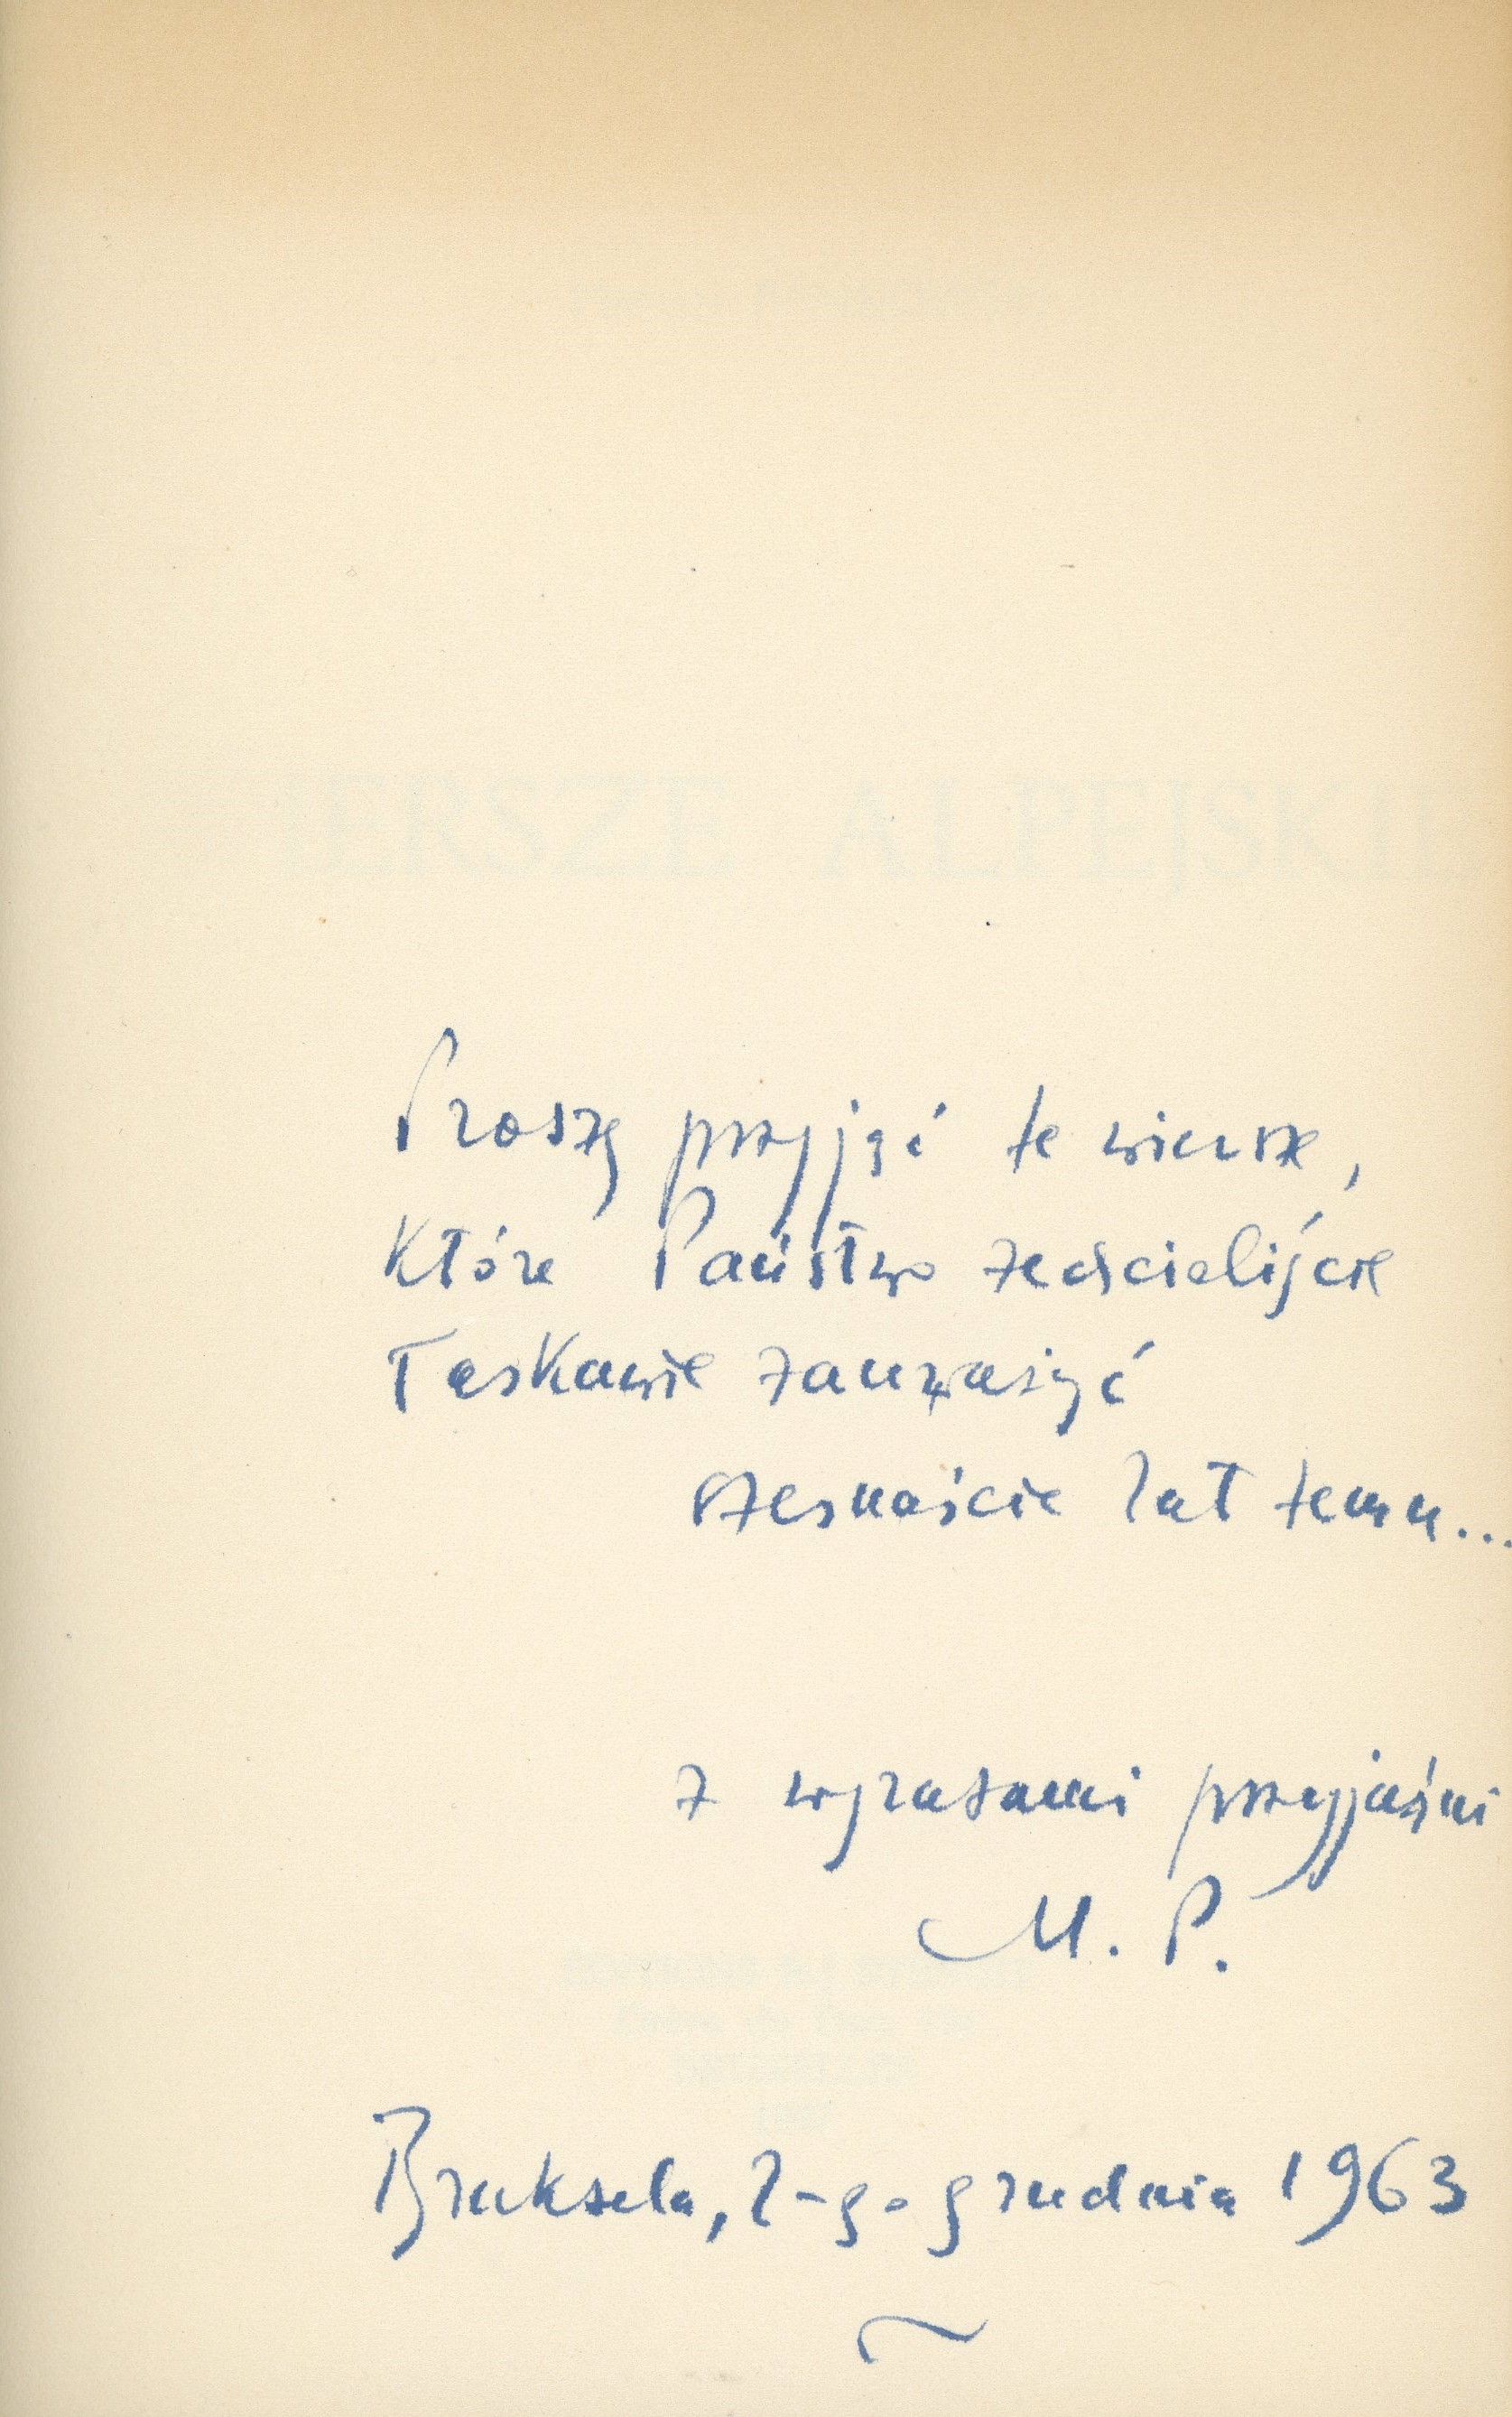 IERSZE ALPEJSKIE
Proszę przyjąć te wiersze,
które Państwo zechcieliście
łaskawie zauważyć
szesnaście lat temu...
z wyrazami przyjaźni
M. P.
Bruksela, 2-go grudnia 1963